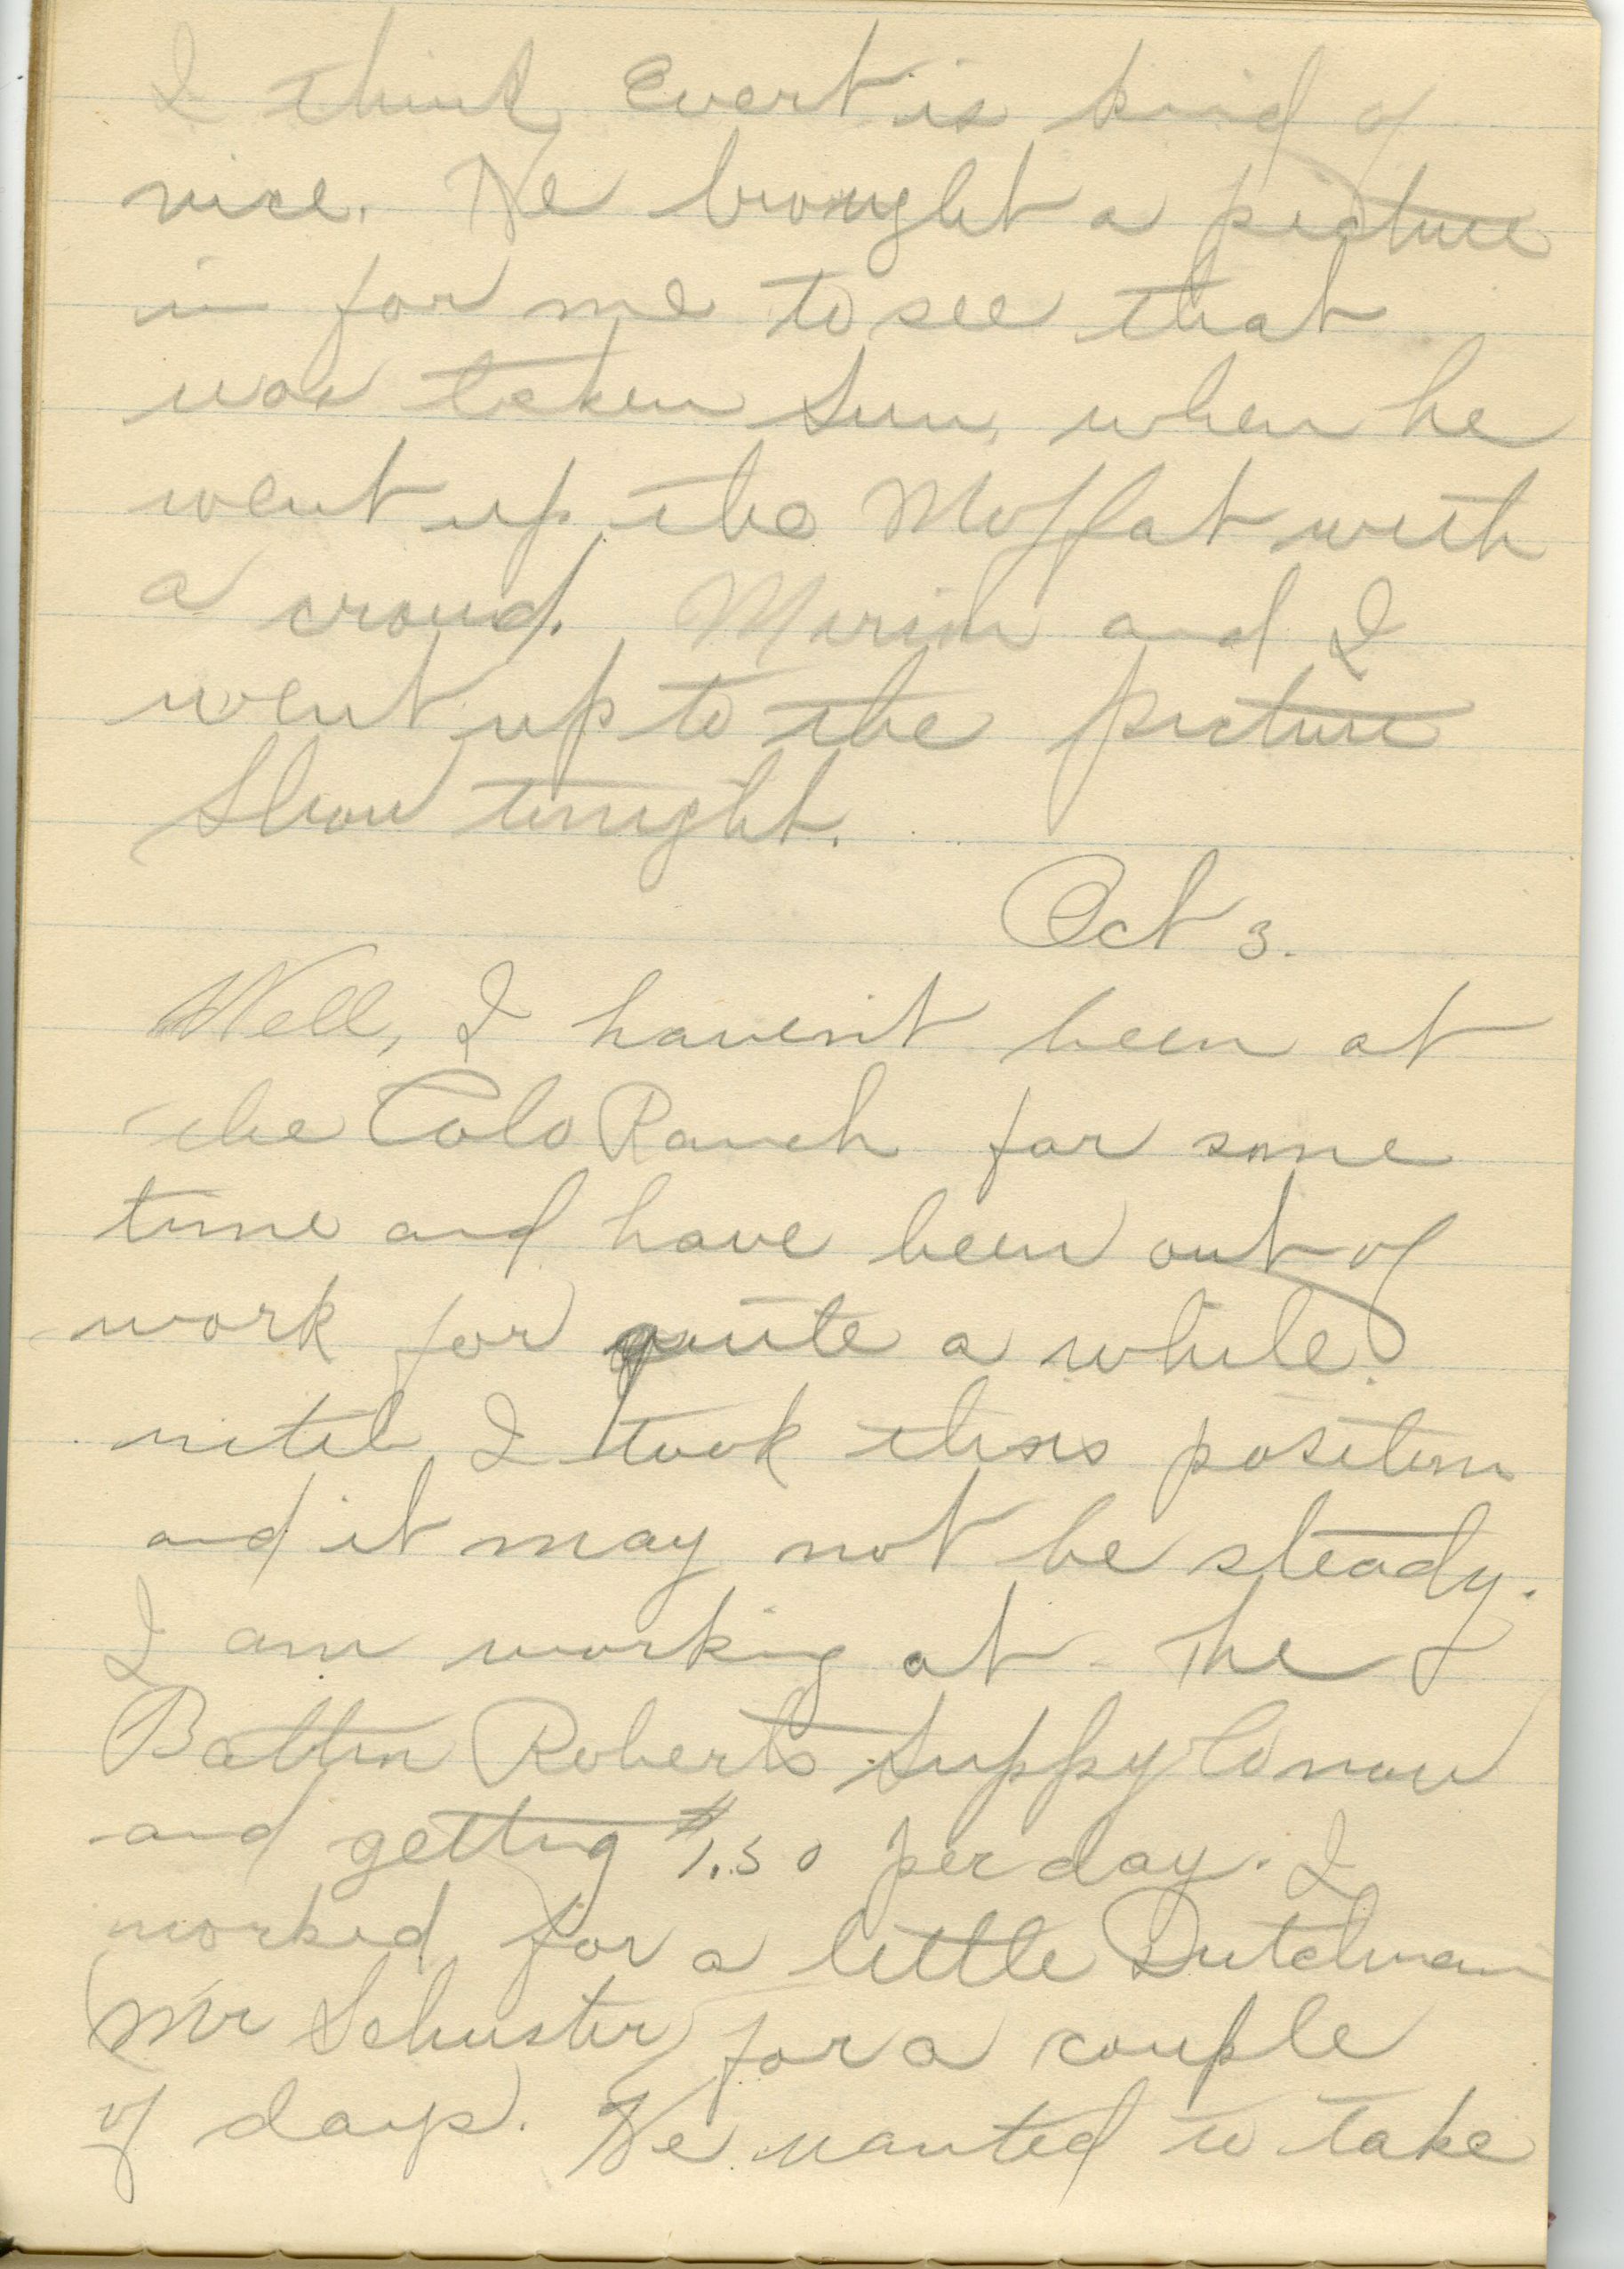 I think Evert is kind of
nice. He brought a picture
in for me to see that
was taken Sun. when he
went up the Moffat with
a crowd. and I
went up to the picture
Show tonight.
Oct 3.
Well, I haven't been at
the Colo Ranch for some
time and have been out of
work for quite a while.
until I took this position
and it may not be steady.
I am working at The
Roberts Suppy Co now
and getting $1.50 per day. I
worked for a little Dutchman
(Mr Schuster) for a couple
of days. He wanted to take